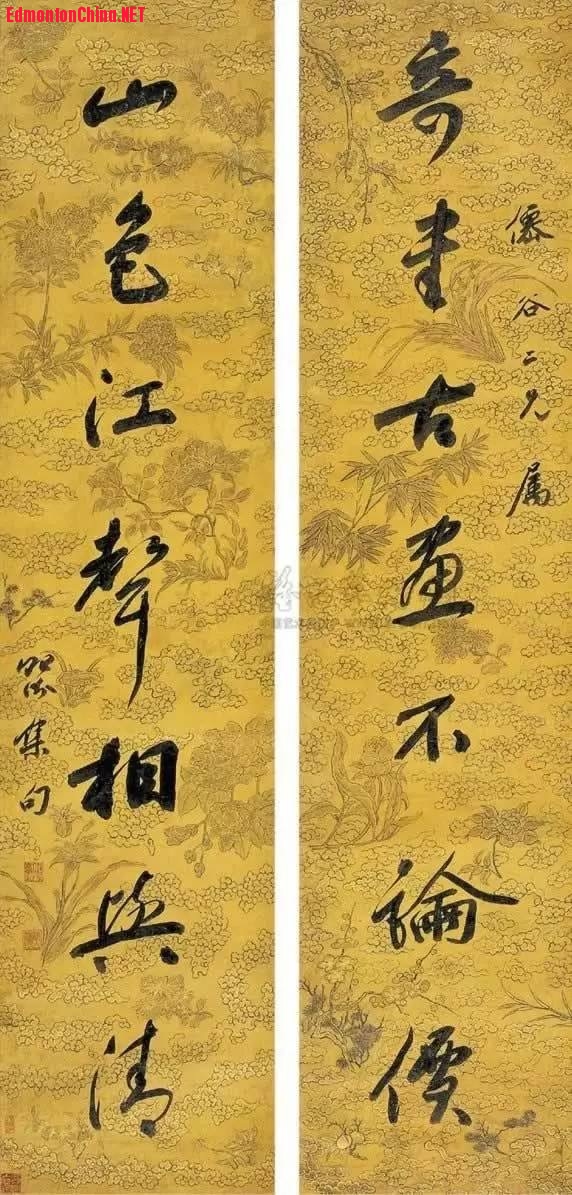 EdmontonChina.NET
僊谷二兄属
奇書古畫不論價
山色江聲相與清
集句